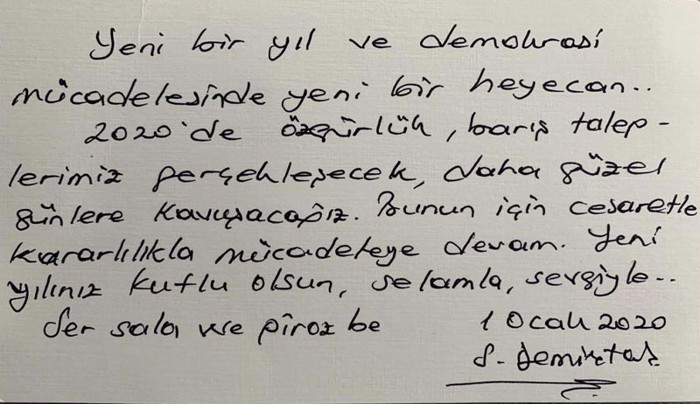 Yeni bir yıl ve demokrasi
mücadelesinde yeni bir heyecan..
2020'de özgürlük, barış talep-
lerimiz gerçekleşecek, daha güzel
günlere kavuşacağız. Bunun için cesaretle
kararlılıkla mücadeleye devam. Yeni
yılınız kutlu olsun, selamla, sevgiyle..
Ser sala we pîroz be
1 Ocak 2020
S. Demirtaş